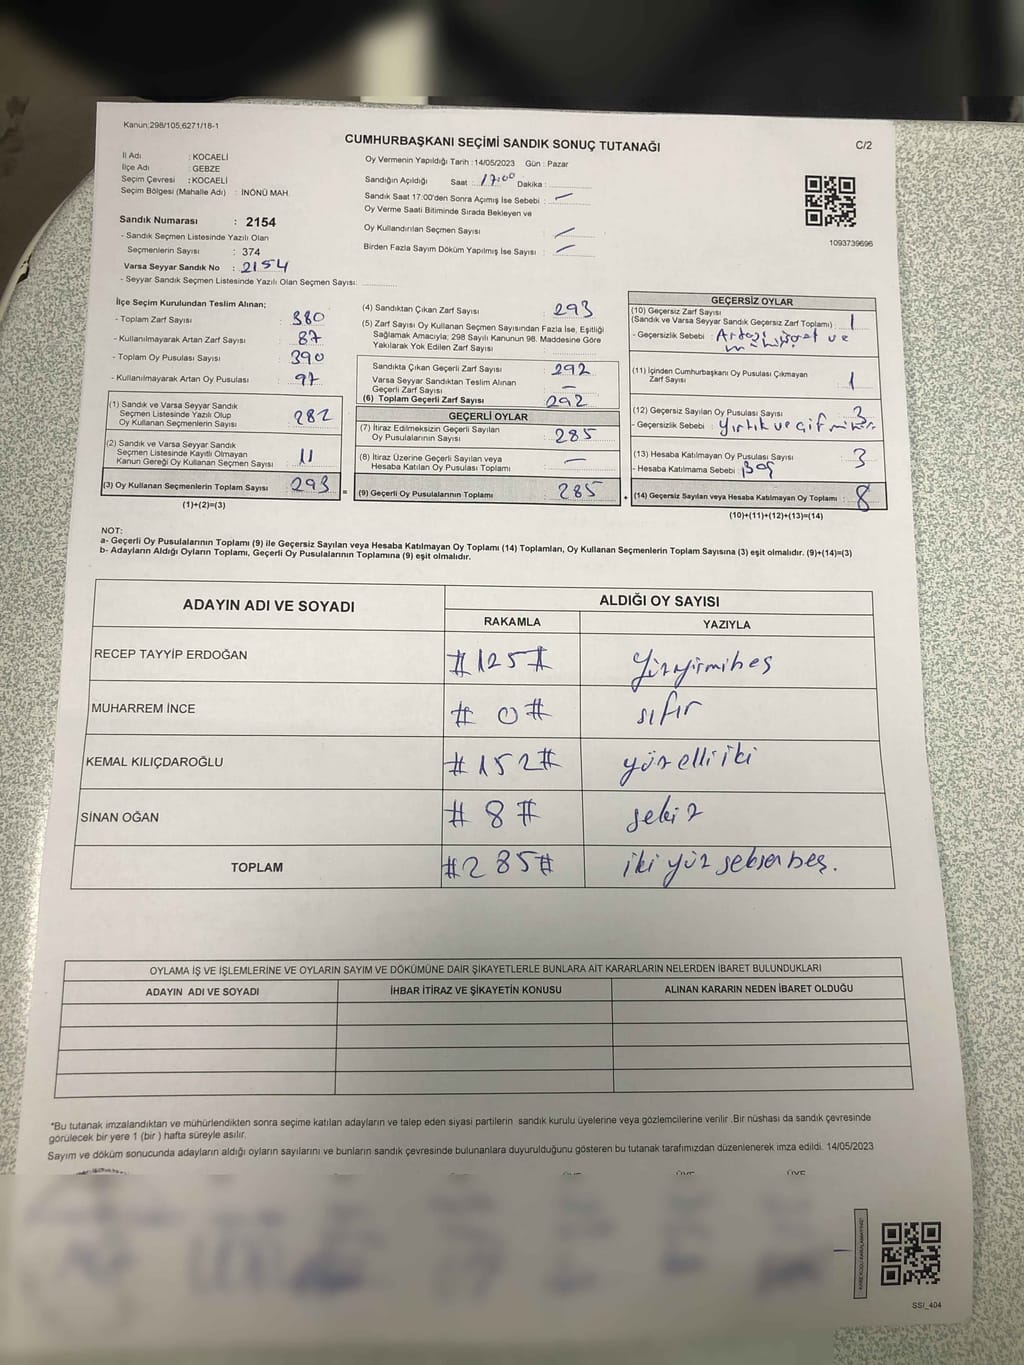 Kanun;298/105,6271/18-1
CUMHURBAŞKANI SEÇİMİ SANDIK SONUÇ TUTANAĞI
C/2
İl Adı : KOCAELİ
İlçe Adı : GEBZE
Seçim Çevresi : KOCAELİ
Seçim Bölgesi (Mahalle Adı) : İNÖNÜ MAH.
Sandık Numarası : 2154
- Sandık Seçmen Listesinde Yazılı Olan
Seçmenlerin Sayısı : 374
Varsa Seyyar Sandık No : 2154
- Seyyar Sandık Seçmen Listesinde Yazılı Olan Seçmen Sayısı:
Oy Vermenin Yapıldığı Tarih :14/05/2023 Gün : Pazar
Sandığın Açıldığı Saat : 17:00 Dakika :
Sandık Saat 17:00'den Sonra Açımış İse Sebebi : —
Oy Verme Saati Bitiminde Sırada Bekleyen ve
Oy Kullandırılan Seçmen Sayısı : —
Birden Fazla Sayım Döküm Yapılmış İse Sayısı : —
1093739696
İlçe Seçim Kurulundan Teslim Alınan;
- Toplam Zarf Sayısı : 380
- Kullanılmayarak Artan Zarf Sayısı : 87
- Toplam Oy Pusulası Sayısı : 390
- Kullanılmayarak Artan Oy Pusulası : 97
(1) Sandık ve Varsa Seyyar Sandık
Seçmen Listesinde Yazılı Olup
Oy Kullanan Seçmenlerin Sayısı : 282
(2) Sandık ve Varsa Seyyar Sandık
Seçmen Listesinde Kayıtlı Olmayan
Kanun Gereği Oy Kullanan Seçmen Sayısı : 11
(3) Oy Kullanan Seçmenlerin Toplam Sayısı : 293
(1)+(2)=(3)
=
(4) Sandıktan Çıkan Zarf Sayısı : 293
(5) Zarf Sayısı Oy Kullanan Seçmen Sayısından Fazla İse, Eşitliği
Sağlamak Amacıyla; 298 Sayılı Kanunun 98. Maddesine Göre
Yakılarak Yok Edilen Zarf Sayısı :
Sandıkta Çıkan Geçerli Zarf Sayısı : 292
Varsa Seyyar Sandıktan Teslim Alınan
Geçerli Zarf Sayısı : —
(6) Toplam Geçerli Zarf Sayısı : 292
GEÇERLİ OYLAR
(7) İtiraz Edilmeksizin Geçerli Sayılan
Oy Pusulalarının Sayısı : 285
(8) İtiraz Üzerine Geçerli Sayılan veya
Hesaba Katılan Oy Pusulası Toplamı : —
(9) Geçerli Oy Pusulalarının Toplamı : 285
+
GEÇERSİZ OYLAR
(10) Geçersiz Zarf Sayısı
(Sandık ve Varsa Seyyar Sandık Geçersiz Zarf Toplamı) : 1
- Geçersizlik Sebebi : ve
(11) İçinden Cumhurbaşkanı Oy Pusulası Çıkmayan
Zarf Sayısı : 1
(12) Geçersiz Sayılan Oy Pusulası Sayısı : 3
- Geçersizlik Sebebi : Yırtık ve çift
(13) Hesaba Katılmayan Oy Pusulası Sayısı : 3
- Hesaba Katılmama Sebebi : Boş
(14) Geçersiz Sayılan veya Hesaba Katılmayan Oy Toplamı : 8
(10)+(11)+(12)+(13)=(14)
NOT:
a- Geçerli Oy Pusulalarının Toplamı (9) ile Geçersiz Sayılan veya Hesaba Katılmayan Oy Toplamı (14) Toplamları, Oy Kullanan Seçmenlerin Toplam Sayısına (3) eşit olmalıdır. (9)+(14)=(3)
b- Adayların Aldığı Oyların Toplamı, Geçerli Oy Pusulalarının Toplamına (9) eşit olmalıdır.
ADAYIN ADI VE SOYADI ALDIĞI OY SAYISI
RAKAMLA YAZIYLA
RECEP TAYYİP ERDOĞAN #125# Yüzyirmibeş
MUHARREM İNCE # 0# sıfır
KEMAL KILIÇDAROĞLU #152# yüz elli iki
SİNAN OĞAN # 8# sekiz
TOPLAM #285# iki yüz seksen beş.
OYLAMA İŞ VE İŞLEMLERİNE VE OYLARIN SAYIM VE DÖKÜMÜNE DAİR ŞİKAYETLERLE BUNLARA AİT KARARLARIN NELERDEN İBARET BULUNDUKLARI
ADAYIN ADI VE SOYADI İHBAR İTİRAZ VE ŞİKAYETİN KONUSU ALINAN KARARIN NEDEN İBARET OLDUĞU
*Bu tutanak imzalandıktan ve mühürlendikten sonra seçime katılan adayların ve talep eden siyasi partilerin sandık kurulu üyelerine veya gözlemcilerine verilir .Bir nüshası da sandık çevresinde
görülecek bir yere 1 (bir ) hafta süreyle asılır.
Sayım ve döküm sonucunda adayların aldığı oyların sayılarını ve bunların sandık çevresinde bulunanlara duyurulduğunu gösteren bu tutanak tarafımızdan düzenlenerek imza edildi. 14/05/2023
ÜYE ÜYE ÜYE
KAREKODU KARALAMAYINIZ!
SSI_404